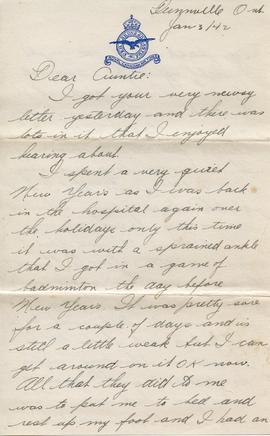 Guznville Ont.
Jan 3/42
ROYAL CANADIAN AIR FORCE
Dear Auntie:
I got your very newsy
letter yesterday and there was
lots in it that I enjoyed
hearing about.
I spent a very quiet
New Years as I was back
in the hospital again over
the holidays only this time
it was with a sprained ankle
that I got in a game of
badminton the day before
New Years. It was pretty sore
for a couple of days and is
still a little weak but I can
get around on it OK now.
All that they did to me
was to put me to bed and
rest up my foot and I had an